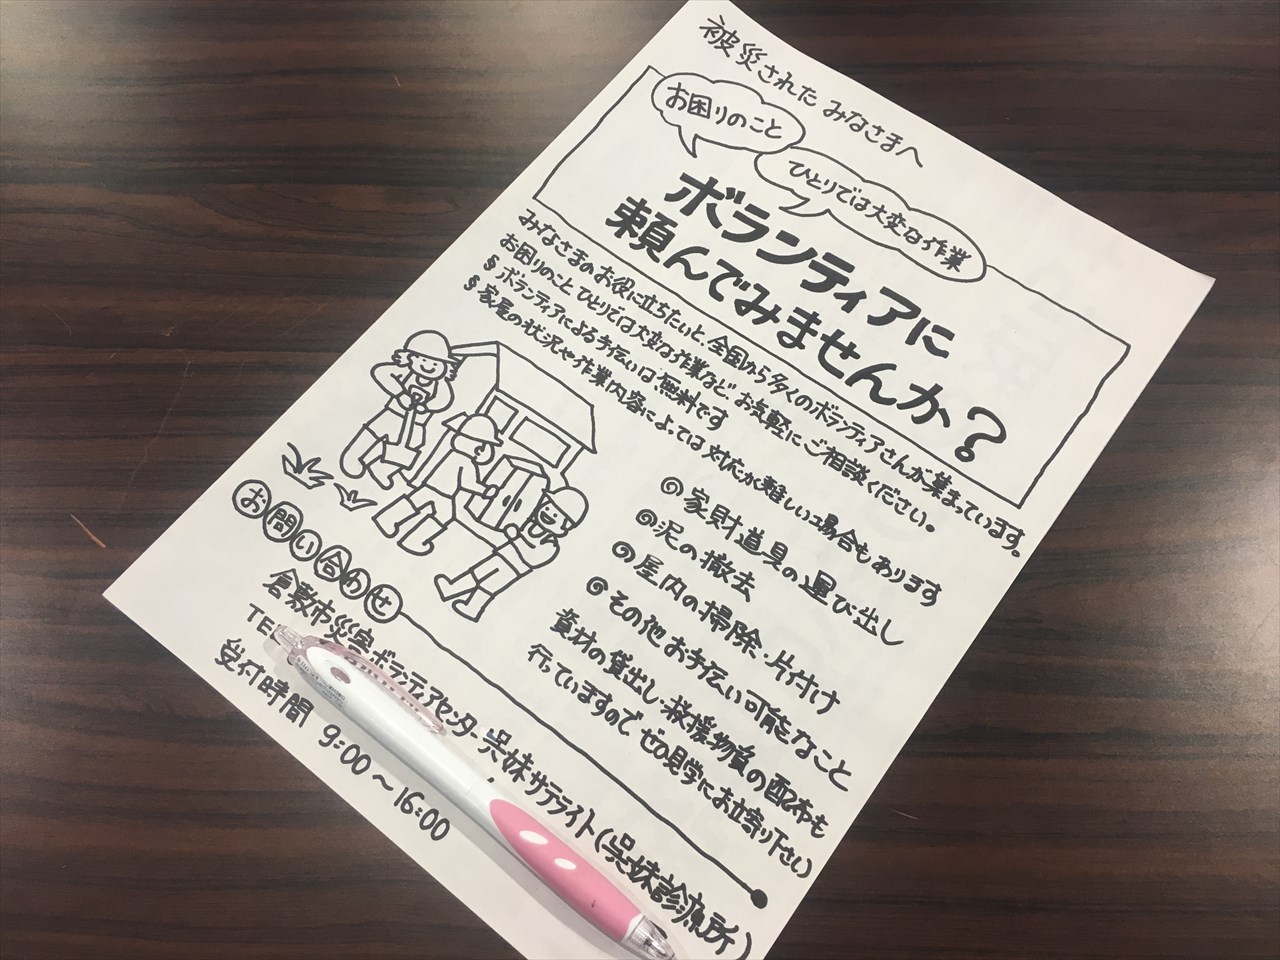 被災された みなさまへ
お困りのこと
ひとりでは大変な作業
ボランティアに
頼んでみませんか?
みなさまのお役に立ちたいと、全国から多くのボランティアさんが集まっています。
お困りのこと ひとりでは大変な作業など、お気軽にご相談ください。
§ ボランティアによる手伝いは、無料です
§ 家屋の状況や作業内容によっては 対応が難しい場合もあります
家財道具の運び出し
泥の撤去
屋内の掃除・片付け
その他 お手伝い可能なこと
資材の貸出し・救援物資の配布も
行っていますので ぜひ見学にお立寄り下さい
お問い合わせ
倉敷市災害ボランティアセンター 呉妹サテライト(呉妹診療所)
受付時間 9:00〜16:00